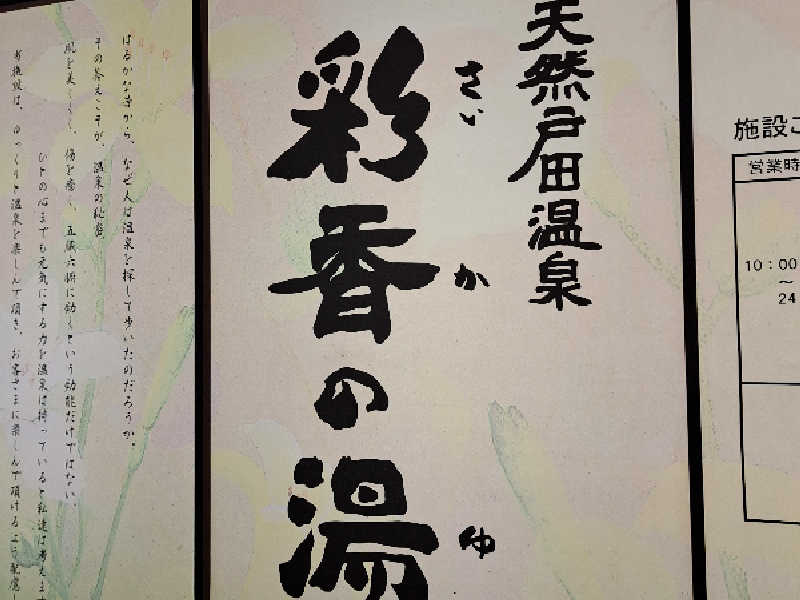 天然戸田温泉
さいか ゆ
彩香の湯
はるかな昔から、なぜ人は温泉を探して歩いたのだろうか。
その答えこそが、温泉の
肌を美しく、傷を癒し、五臓六腑に効くという効能だけではない。
ひとの心までも元気にする力を温泉は持っていると私達は考えます
当施設は、ゆっくりと温泉を楽しんで頂き、お客さまに楽しんで頂けるよう配慮し
施設
営業時
10：00
～
24